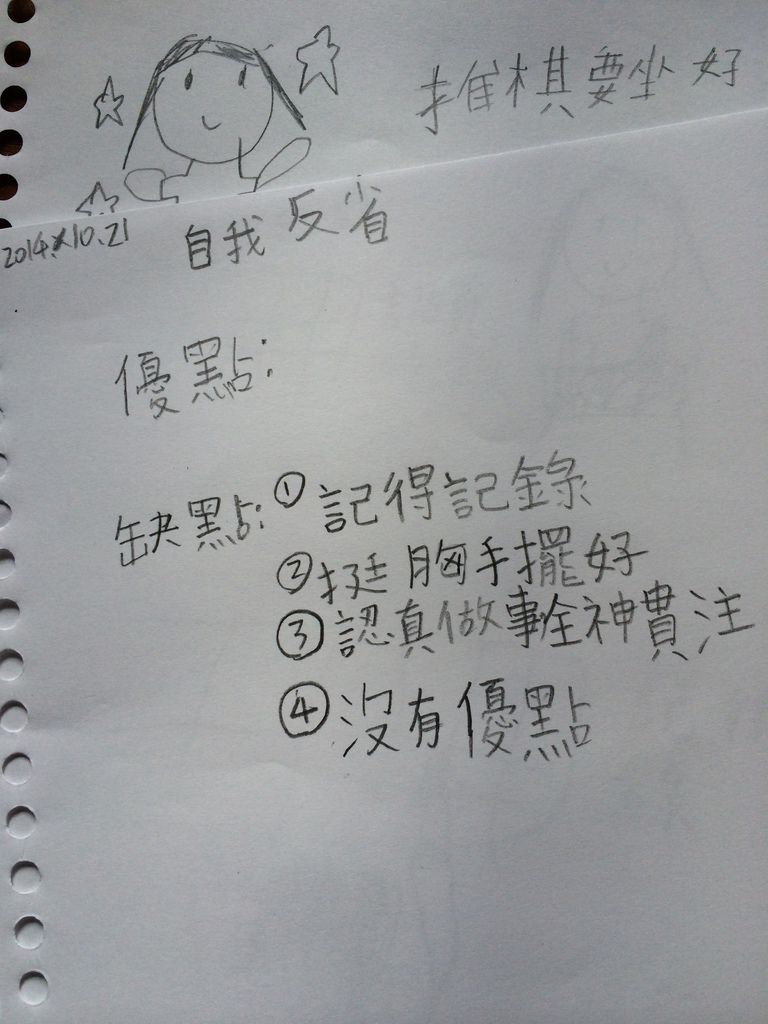 推棋要坐好
2014.10.21 自我反省
優點:
缺點:①記得記錄
②挺胸手擺好
③認真做事全神貫注
④沒有優點